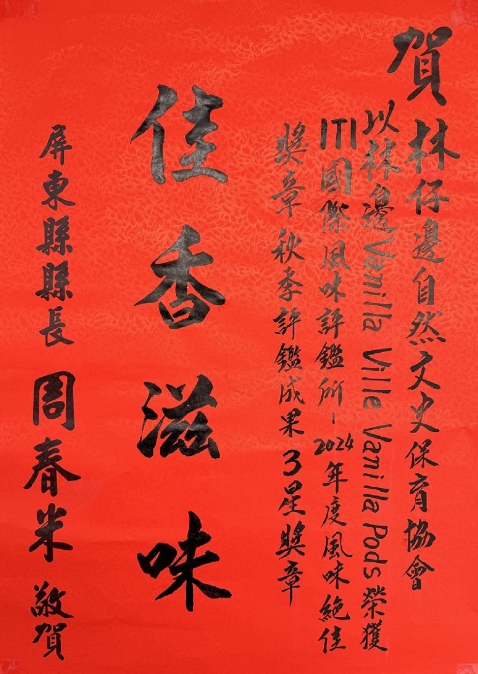 賀林仔邊自然文史保育協會
以林邊Vanilla Ville Vanilla Pods榮獲
ITI國際風味評鑑所-2024年度風味絕佳
獎章秋季評鑑成果3星獎章
佳香滋味
屏東縣縣長周春米敬賀